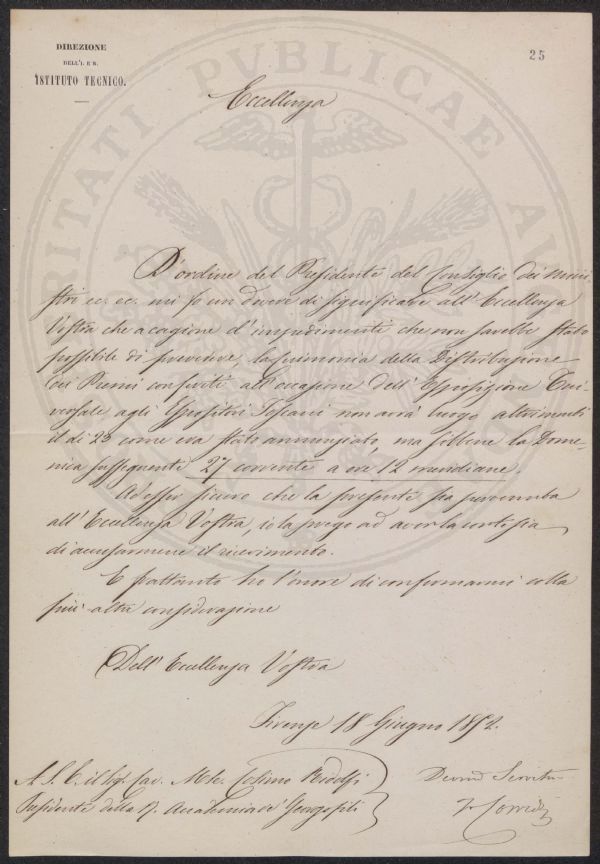 DIREZIONE
DELL'I. E R.
ISTITUTO TECNICO.
25
Eccellenza
D'ordine del Presidente del Consiglio dei Mini-
stri ec. ec. mi fo un dovere di significare all'Eccellenza
Vostra che a cagione d'impedimenti che non sarebbe stato
possibile di prevenire, la cerimonia della Distribuzione
dei Premi conferiti all'occasione dell'Esposizione Uni-
versale agli Espositori Toscani non avrà luogo altrimenti
il dì 23 come era stato annunziato, ma sibbene la Dome-
nica susseguente 27 corrente a ore 12 meridiane.
Ad esser sicuro che la presente sia pervenuta
all'Eccellenza Vostra, io la prego ad aver la cortesia
di accusarmene il ricevimento.
E frattanto ho l'onore di confermarmi colla
più alta considerazione
Dell'Eccellenza Vostra
Firenze 18 Giugno 1852.
A S. E. il Sig. Cav. Mse. Cosimo Ridolfi
Presidente della R. Accademia de' Georgofili
Devmo Servitore
F. Corridi
VERITATI PVBLICAE